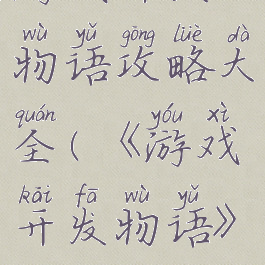 wù yǔ gōng lüè dà
物语攻略大
quán yóu xì
全(《游戏
kāi fā wù yǔ
开发物语》